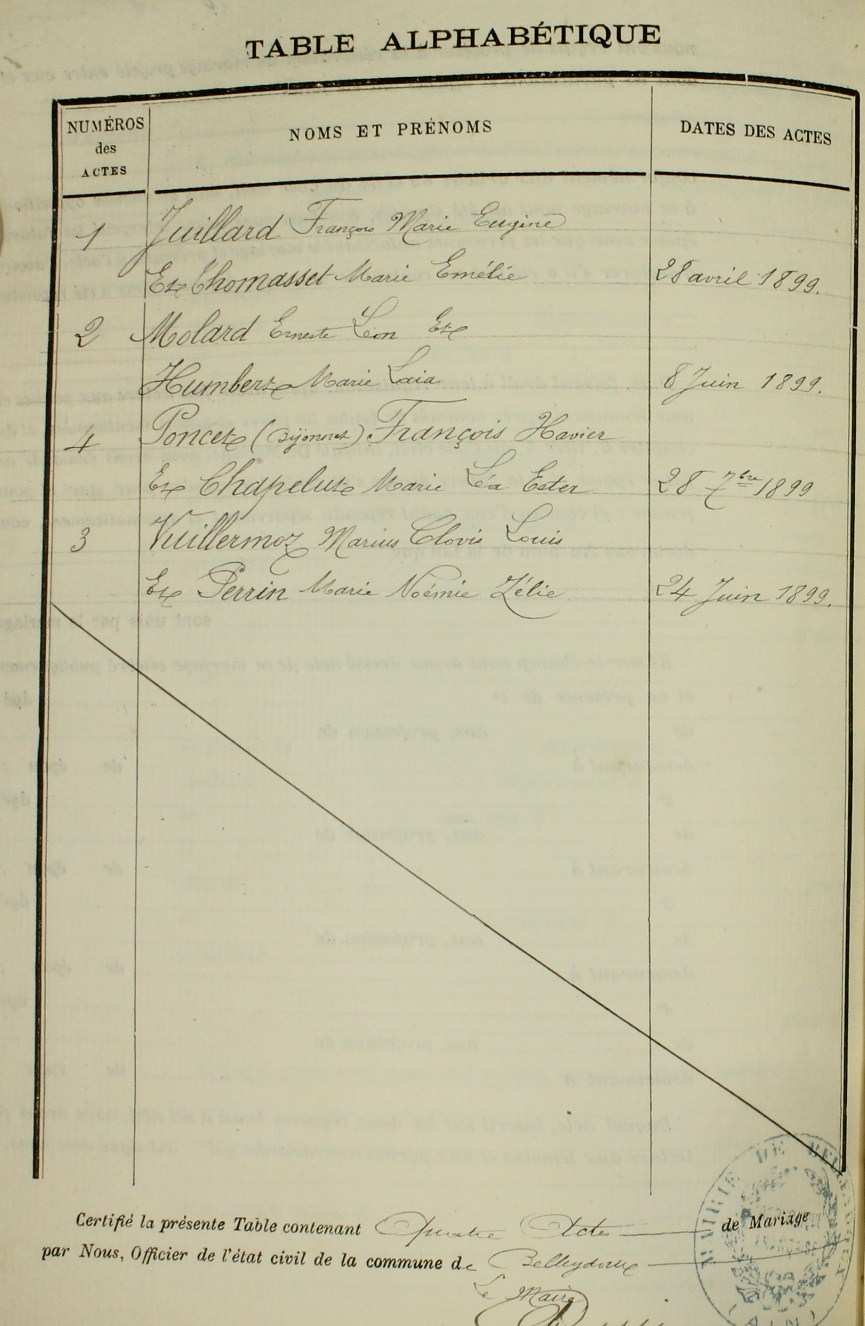 TABLE ALPHABÉTIQUE
NUMÉROS des ACTES
NOMS ET PRÉNOMS
DATES DES ACTES
1 Juillard François Marie Eugène
Et Thomasset Marie Emélie 28 avril 1899.
2 Molard Erneste Léon Et
Humbert Marie Laia 8 Juin 1899.
4 Poncet (Bijonnet) François Xavier
Et Chapelut Marie Léa Ester 28 7bre 1899
3 Vuillermoz Marius Clovis Louis
Et Perrin Marie Noémie Zélie 24 Juin 1899.
Certifié la présente Table contenant Quatre Actes de Mariage
par Nous, Officier de l'état civil de la commune de Belleydoux
Le Maire
MAIRIE DE BELLEYDOUX
(AIN)